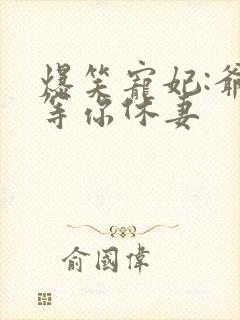 爆笑寵妃:爺
等你休妻
俞國偉